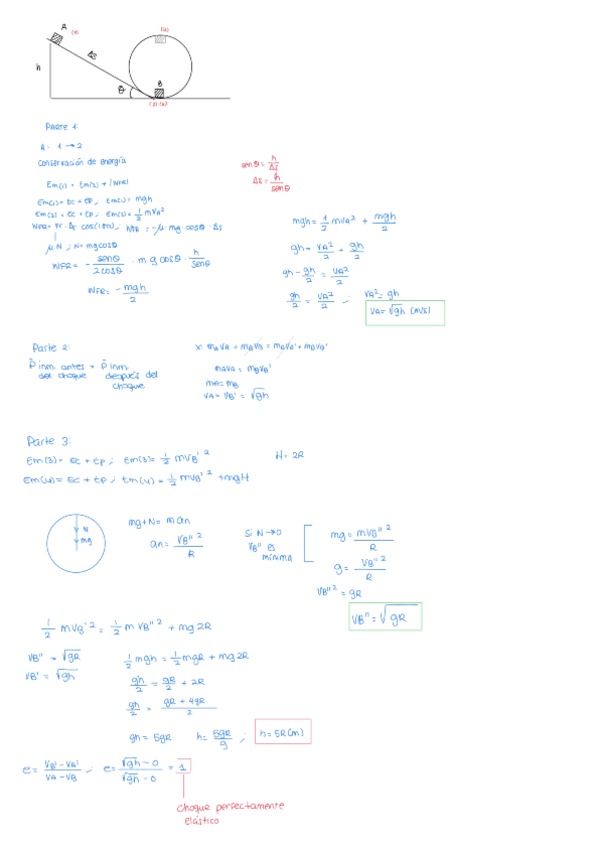 A (1)
(4)
Δs
h
θ
B
(2) (3)
Parte 1:
A: 1 → 2
Conservación de energía
senθ = h/Δs
Δs = h/senθ
Em(1) = Em(2) + |WFR|
Em(1) = Ec + Ep ; Em(1) = mgh
Em(2) = Ec + Ep ; Em(2) = 1/2 mVA²
WFR = Fr · Δs cos(180) ; WFR = -μ · mg · cosθ · Δs
μ.N ; N = mgcosθ
WFR = - senθ/2cosθ · mg cosθ · h/senθ
WFR = -mgh/2
mgh = 1/2 mVA² + mgh/2
gh = VA²/2 + gh/2
gh - gh/2 = VA²/2
gh/2 = VA²/2 ; VA² = gh
VA = √gh (m/s)
Parte 2:
P̄ inm. antes = P̄ inm.
del choque después del
choque
X: mAVA + mBVB = mAVA' + mBVB'
mAVA = mBVB'
mA = mB
VA = VB' = √gh
Parte 3:
Em(3) = Ec + Ep ; Em(3) = 1/2 mVB'²
H = 2R
Em(4) = Ec + Ep ; Em(4) = 1/2 mVB''² + mgH
N
mg
mg + N = m an
an = VB''²/R
Si N → 0
VB'' es
mínima
mg = mVB''²/R
g = VB''²/R
VB''² = gR
VB'' = √gR
1/2 mVB'² = 1/2 m VB''² + mg2R
VB'' = √gR
VB' = √gh
1/2 mgh = 1/2 mgR + mg2R
gh/2 = gR/2 + 2R
gh/2 = gR + 4gR/2
gh = 5gR
h = 5gR/g ;
h = 5R (m)
e = VB' - VA'/VA - VB ; e = √gh - 0/√gh - 0 = 1
Choque perfectamente
elástico